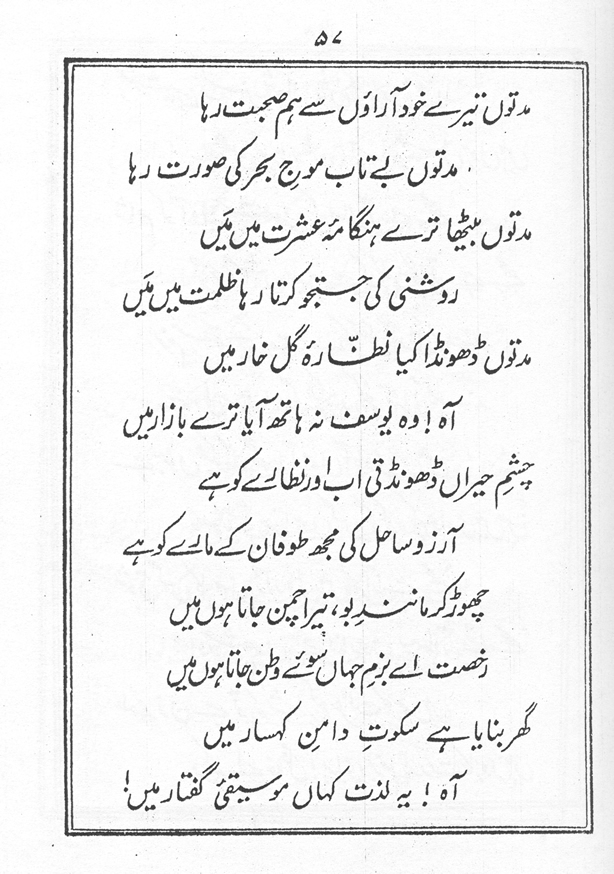 ۵۷
مدتوں تیرے خود آراؤں سے ہم صحبت رہا
مدتوں بے تاب موجِ بحر کی صورت رہا
مدتوں بیٹھا ترے ہنگامۂ عشرت میں مَیں
روشنی کی جستجو کرتا رہا ظلمت میں مَیں
مدتوں ڈھونڈا کیا نظّارۂ گل خار میں
آہ! وہ یوسف نہ ہاتھ آیا ترے بازار میں
چشمِ حیراں ڈھونڈتی اب اور نظارے کو ہے
آرزو ساحل کی مجھ طوفان کے مارے کو ہے
چھوڑ کر مانندِ بو، تیرا چمن جاتا ہوں میں
رخصت اے بزمِ جہاں سوئے وطن جاتا ہوں میں
گھر بنایا ہے سکوتِ دامنِ کہسار میں
آہ! یہ لذت کہاں موسیقیٔ گفتار میں!